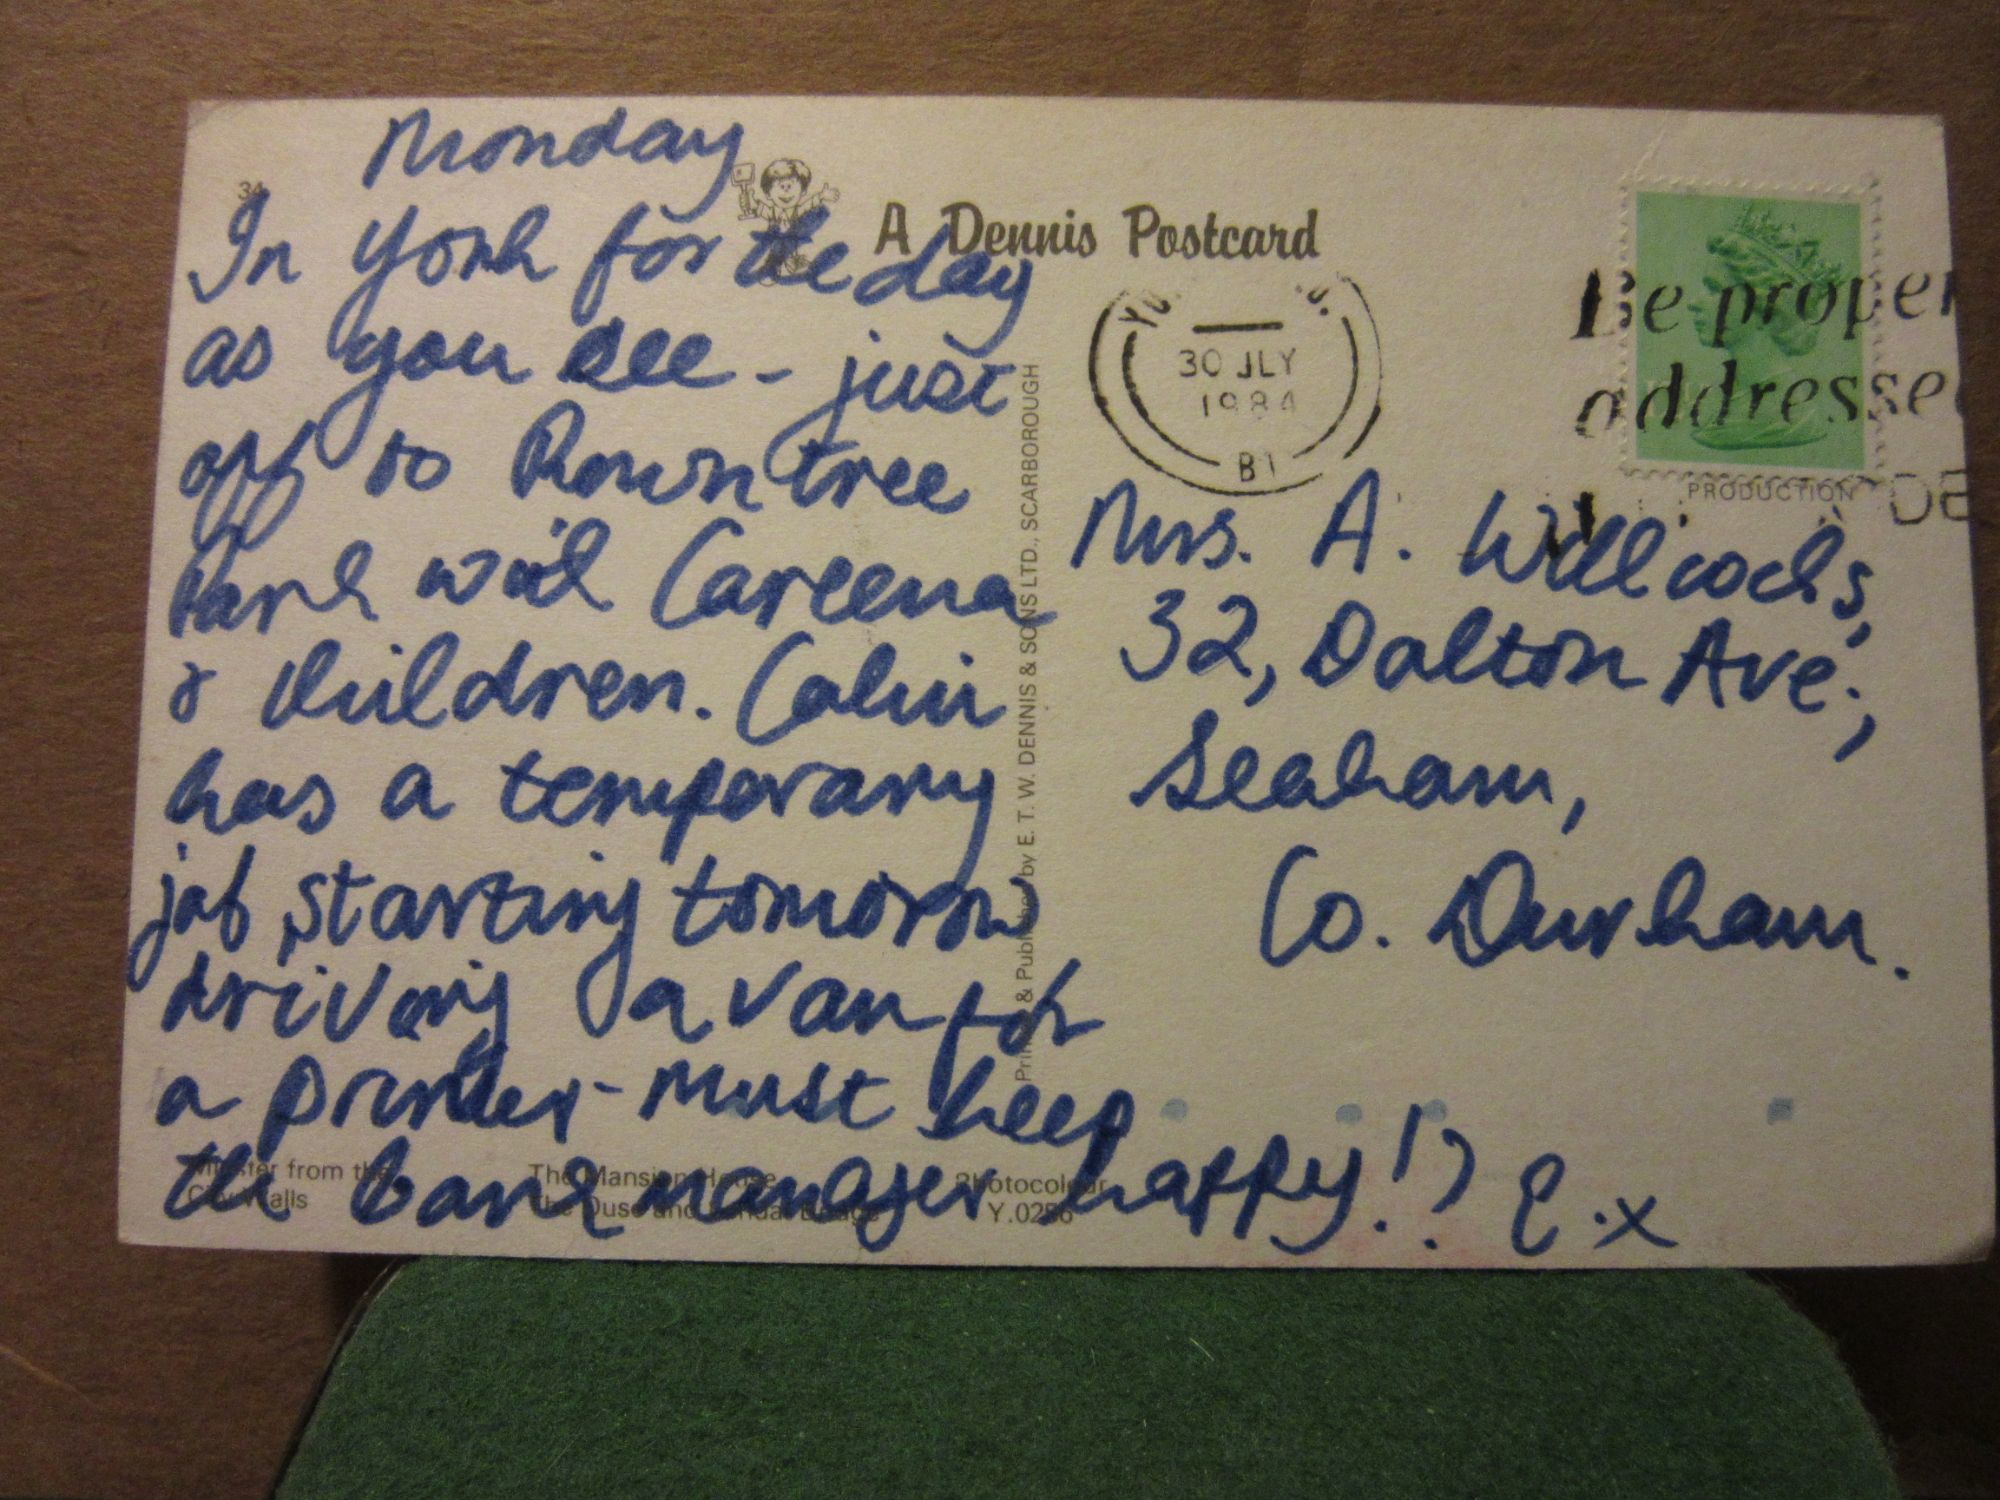 Monday
In York for the day
as you see - just
off to Rowntree
Park with Careena
& children. Colin
has a temporary
job, starting tomorrow
driving a van for
a printer - must keep
the bank manager happy!? C.x
34
A Dennis Postcard
30 JLY
1984
B1
Be proper
addresse
PRODUCTION
Mrs. A. Willcocks,
32, Dalton Ave.,
Seaham,
Co. Durham.
Printed & Published by E. T. W. DENNIS & SONS LTD., SCARBOROUGH
Minster from the
City Walls
The Mansion House
The Ouse and Lendal Bridge
Photocolour
Y.0256